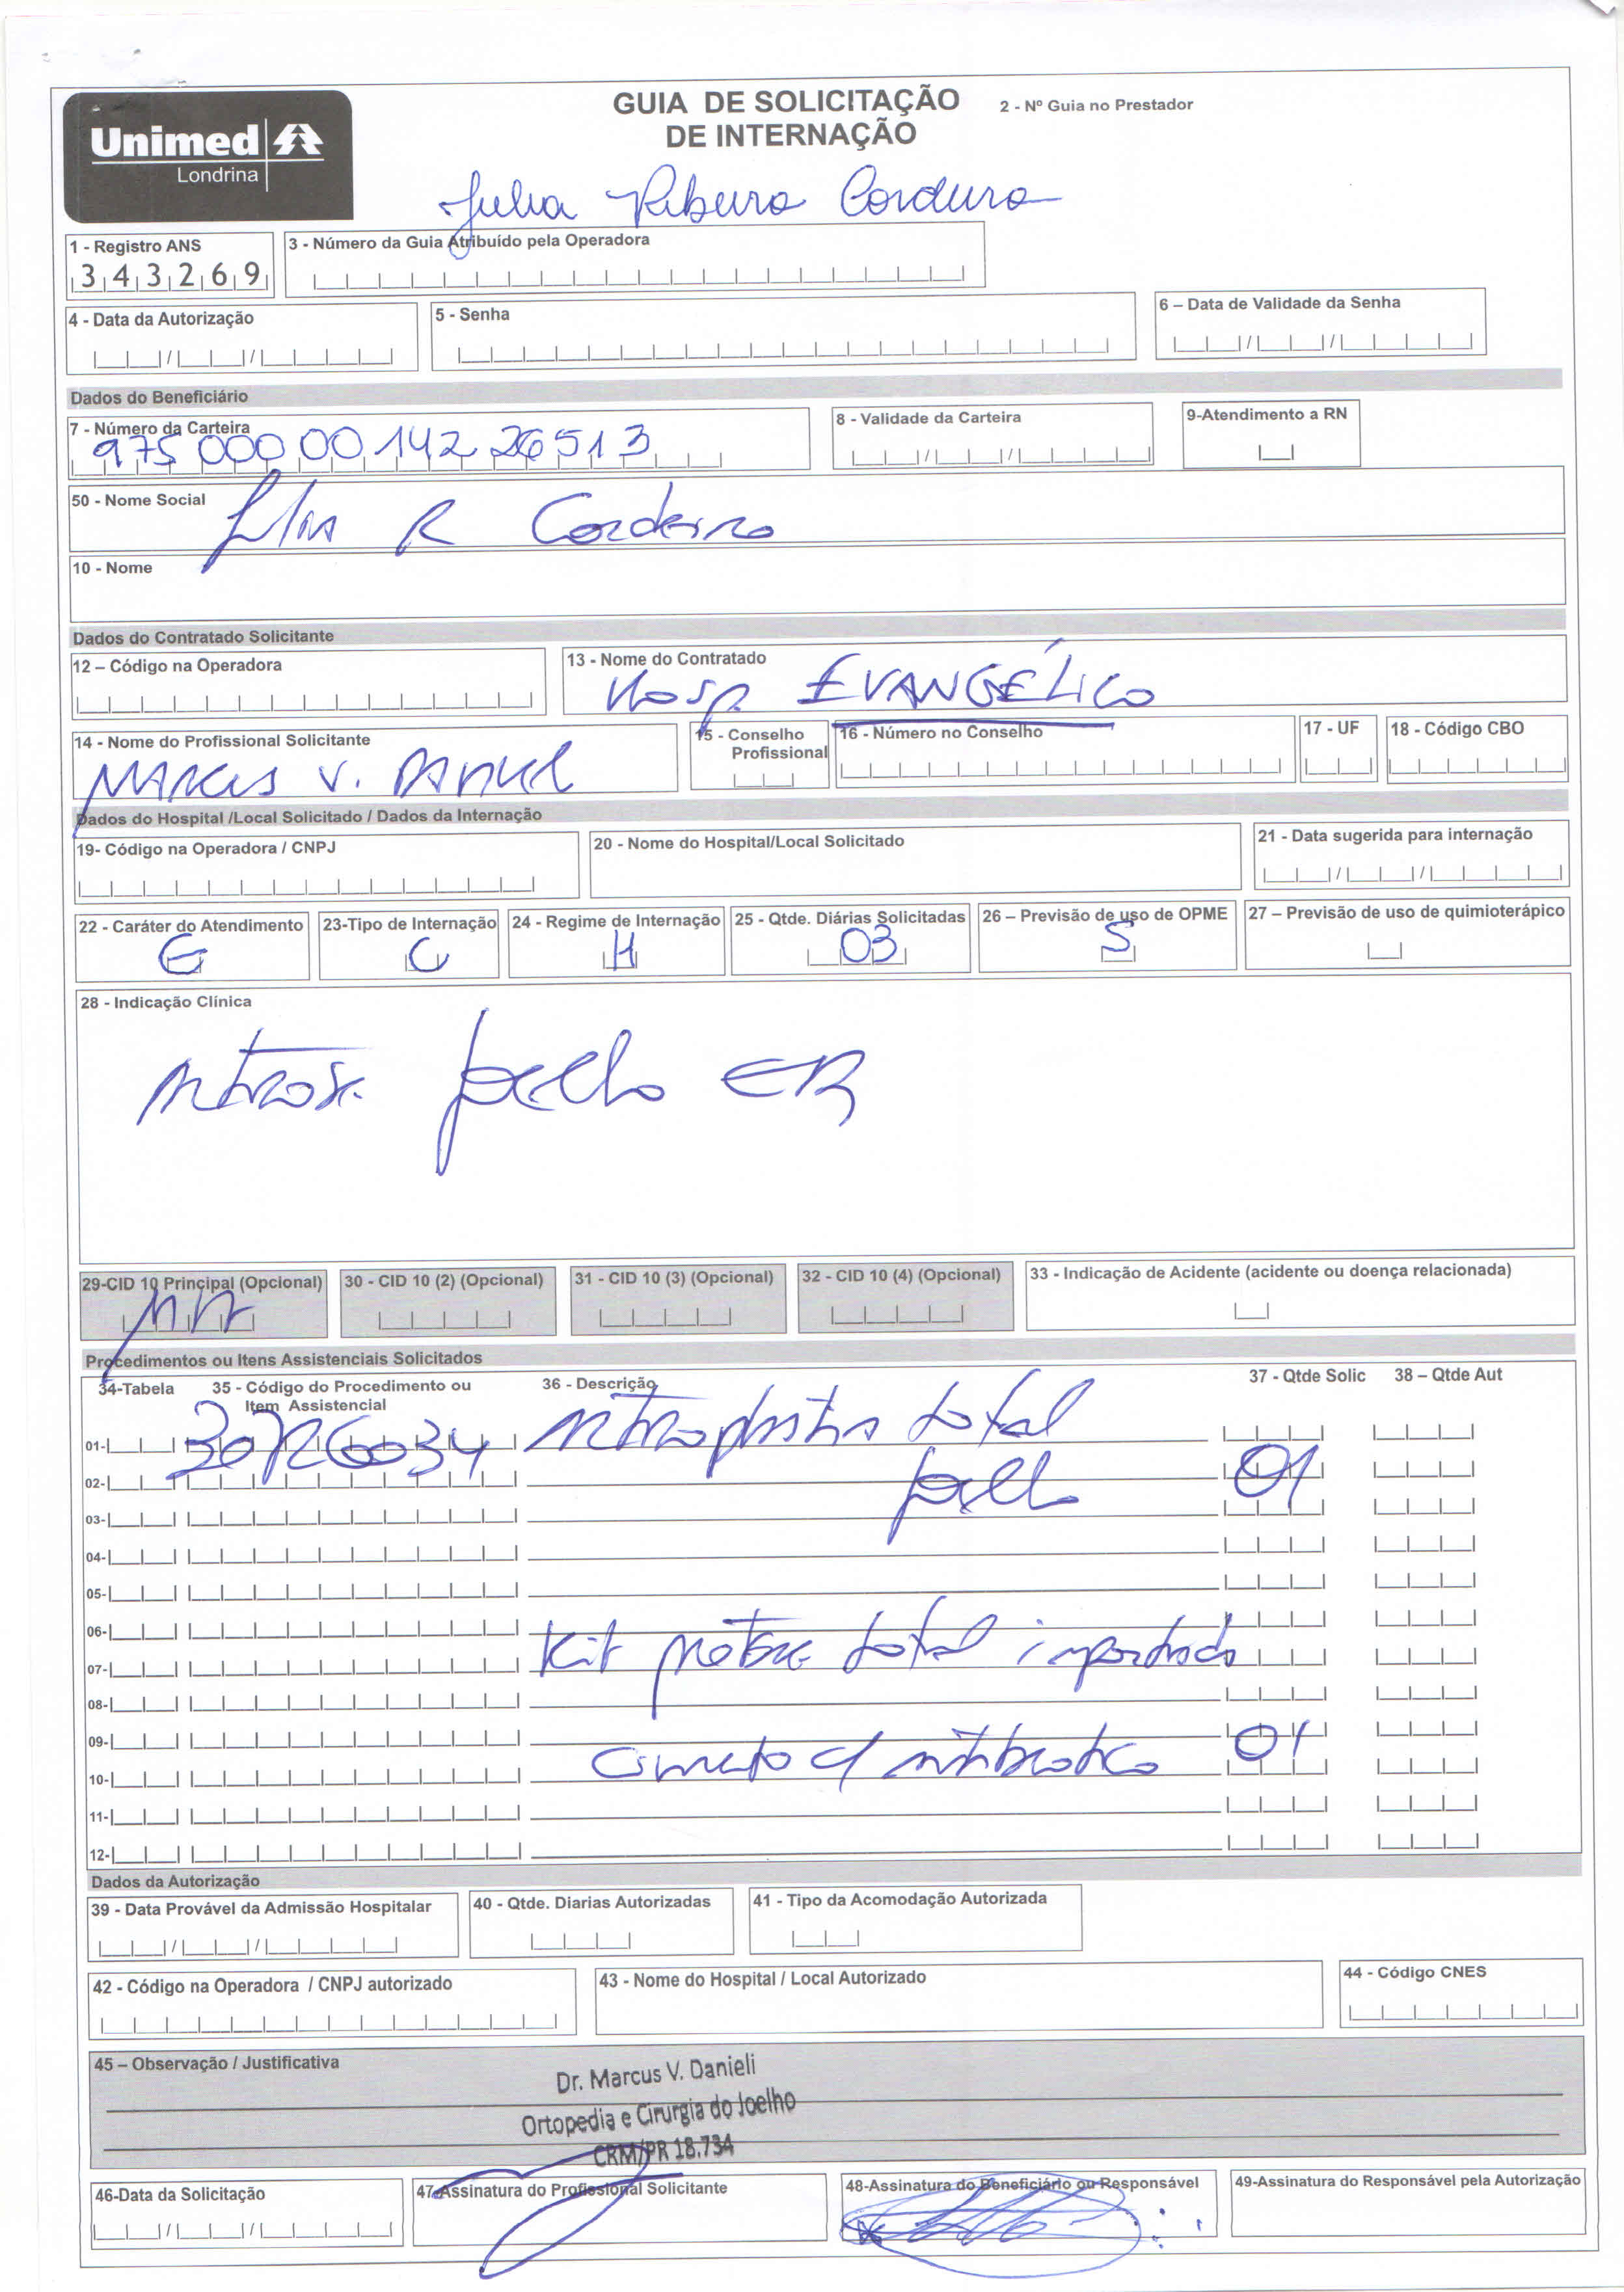 Unimed
Londrina
GUIA DE SOLICITAÇÃO
DE INTERNAÇÃO
2 - Nº Guia no Prestador
Julia Ribeiro Cordeiro
1 - Registro ANS
343269
3 - Número da Guia Atribuído pela Operadora
4 - Data da Autorização
5 - Senha
6 – Data de Validade da Senha
Dados do Beneficiário
7 - Número da Carteira
975 000 00 142 26513
8 - Validade da Carteira
9-Atendimento a RN
50 - Nome Social
R Cordeiro
10 - Nome
Dados do Contratado Solicitante
12 – Código na Operadora
13 - Nome do Contratado
Hosp. EVANGÉLICO
14 - Nome do Profissional Solicitante
MARCUS V. DANIELI
15 - Conselho Profissional
16 - Número no Conselho
17 - UF
18 - Código CBO
Dados do Hospital /Local Solicitado / Dados da Internação
19- Código na Operadora / CNPJ
20 - Nome do Hospital/Local Solicitado
21 - Data sugerida para internação
22 - Caráter do Atendimento
E
23-Tipo de Internação
C
24 - Regime de Internação
H
25 - Qtde. Diárias Solicitadas
03
26 – Previsão de uso de OPME
S
27 – Previsão de uso de quimioterápico
28 - Indicação Clínica
Artrose joelho
29-CID 10 Principal (Opcional)
30 - CID 10 (2) (Opcional)
31 - CID 10 (3) (Opcional)
32 - CID 10 (4) (Opcional)
33 - Indicação de Acidente (acidente ou doença relacionada)
Procedimentos ou Itens Assistenciais Solicitados
34-Tabela
35 - Código do Procedimento ou Item Assistencial
36 - Descrição
37 - Qtde Solic
38 – Qtde Aut
01- 30726034 Artroplastia total
02- joelho 01
03-
04-
05-
06-
07- Kit prótese total importado
08-
09-
10- cimento c/ antibiotico 01
11-
12-
Dados da Autorização
39 - Data Provável da Admissão Hospitalar
40 - Qtde. Diarias Autorizadas
41 - Tipo da Acomodação Autorizada
42 - Código na Operadora / CNPJ autorizado
43 - Nome do Hospital / Local Autorizado
44 - Código CNES
45 – Observação / Justificativa
Dr. Marcus V. Danieli
Ortopedia e Cirurgia do Joelho
CRM/PR 18.734
46-Data da Solicitação
47-Assinatura do Profissional Solicitante
48-Assinatura do Beneficiário ou Responsável
49-Assinatura do Responsável pela Autorização